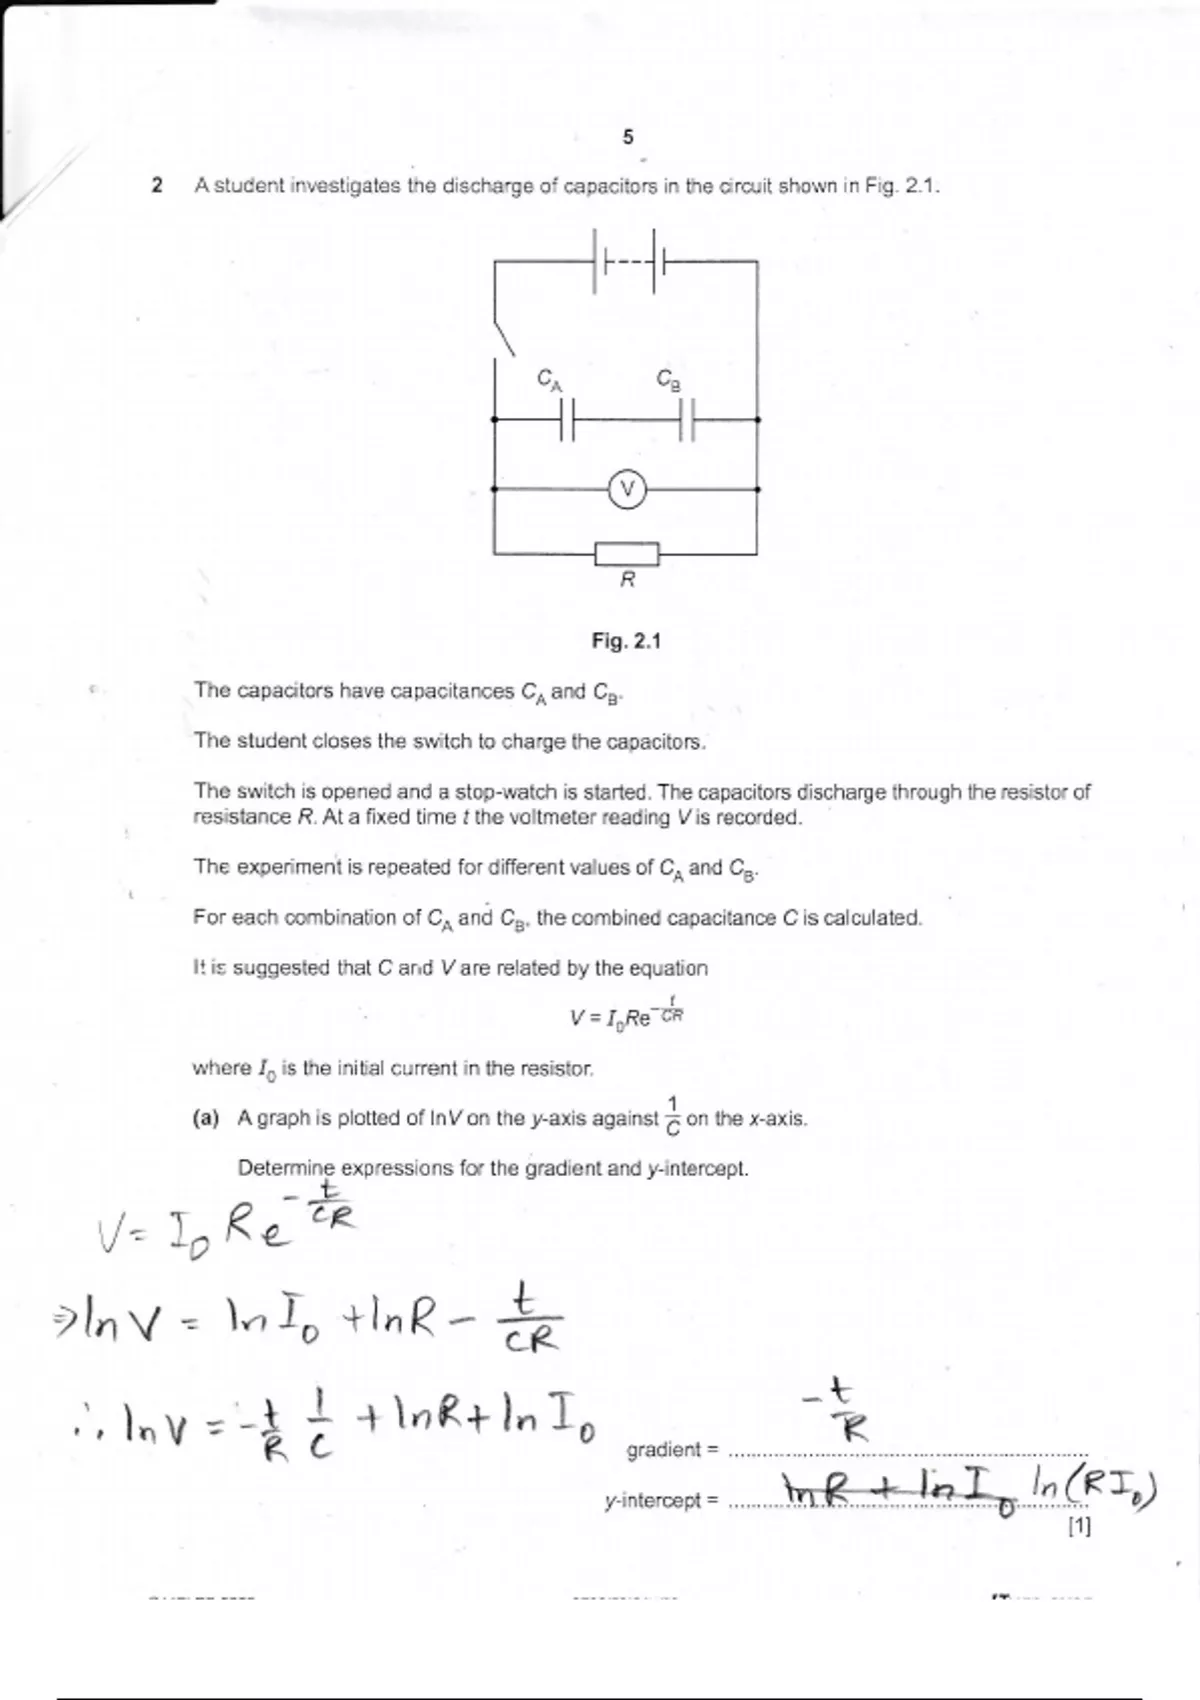 5
2 A student investigates the discharge of capacitors in the circuit shown in Fig. 2.1.
C_A C_B
V
R
Fig. 2.1
The capacitors have capacitances C_A and C_B.
The student closes the switch to charge the capacitors.
The switch is opened and a stop-watch is started. The capacitors discharge through the resistor of
resistance R. At a fixed time t the voltmeter reading V is recorded.
The experiment is repeated for different values of C_A and C_B.
For each combination of C_A and C_B, the combined capacitance C is calculated.
It is suggested that C and V are related by the equation
V = I₀Re^(-t/CR)
where I₀ is the initial current in the resistor.
(a) A graph is plotted of lnV on the y-axis against 1/C on the x-axis.
Determine expressions for the gradient and y-intercept.
V = I₀ R e^(-t/CR)
⇒ ln V = ln I₀ + ln R - t/CR
∴ ln V = -t/R 1/C + ln R + ln I₀
gradient = -t/R
y-intercept = ln R + ln I₀ ln(RI₀)
[1]